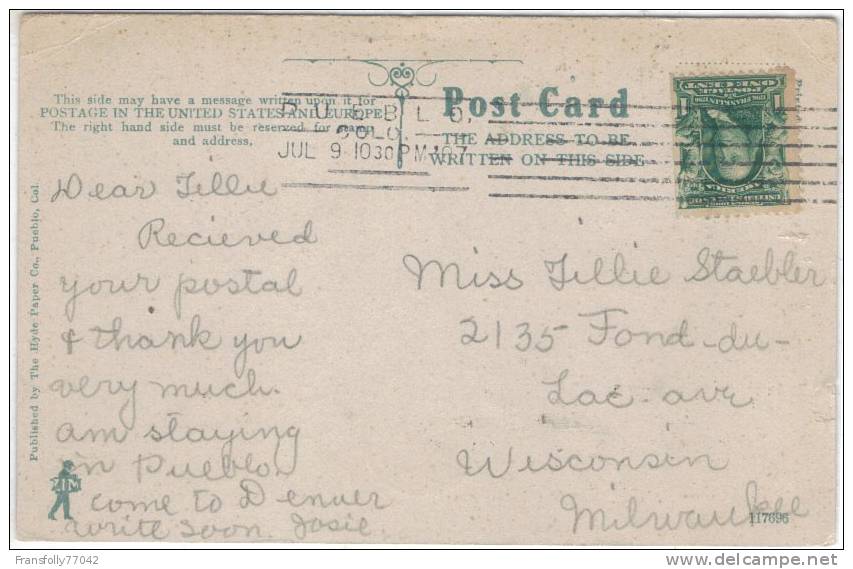 This side may have a message written upon it for
POSTAGE IN THE UNITED STATES AND EUROPE
The right hand side must be reserved for stamp
and address.
Post Card
THE ADDRESS TO BE
WRITTEN ON THIS SIDE
PUEBLO,
COLO.
JUL 9 1030 PM '07
Dear Tillie
Recieved
your postal
& thank you
very much.
am staying
in Pueblo.
come to Denver
write soon. Josie
Miss Tillie Staebler
2135 Fond-du-
Lac-ave
Wisconsin
Milwaukee
Published by The Hyde Paper Co., Pueblo, Col.
ZIM
117696
ONE CENT
POSTAGE
1 1
Fransfolly77042